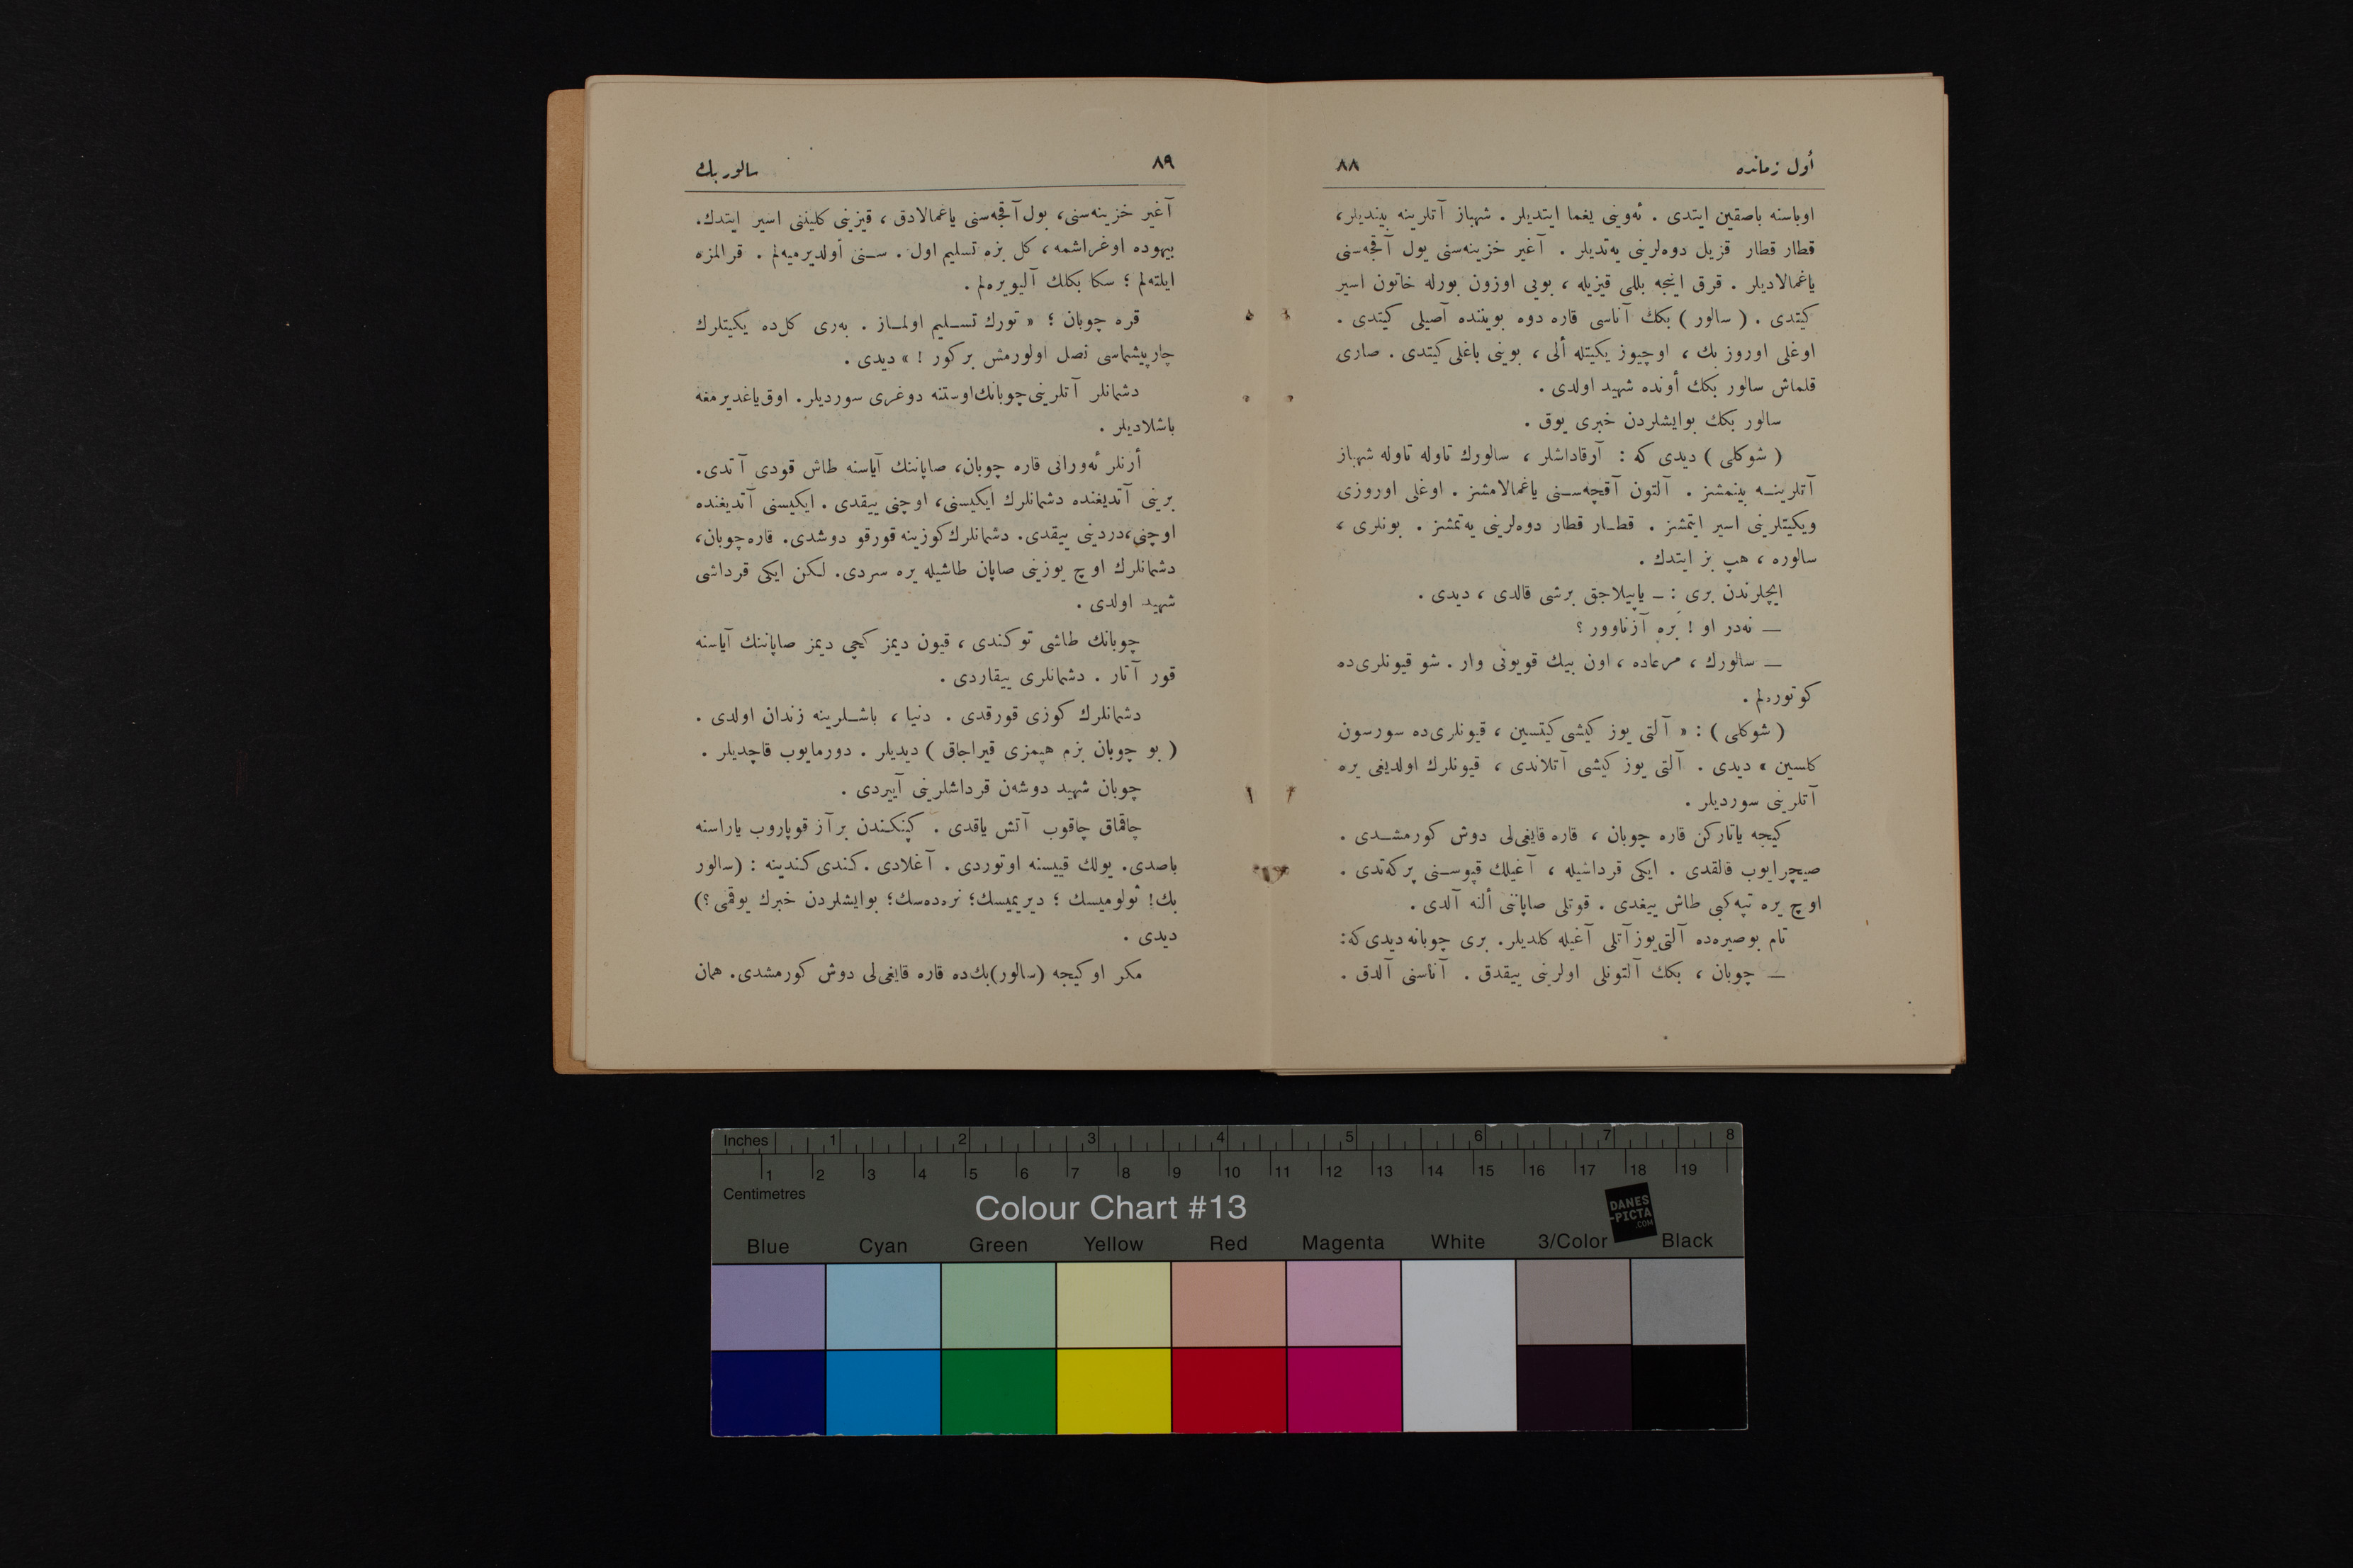 أول زمانده ٨٨
اوباسنه باصقین ایتدی . ئه‌وینی یغما ایتدیلر . شهباز آتلرینه بیندیلر،
قطار قطار قزیل دوه‌لرینی یه‌تدیلر . آغیر خزینه‌سنی بول آقچه‌سنی
یاغمالادیلر . قرق اینجه بللی قیزیله ، بویی اوزون بورله خاتون اسیر
کیتدی . ( سالور ) بكك آناسی قاره دوه بویننده آصیلی کیتدی .
اوغلی اوروز بك ، اوچیوز یکیتله ألی ، بوینی باغلی کیتدی . صاری
قلماش سالور بكك أونده شهید اولدی .
سالور بكك بوایشلردن خبری یوق .
( شوکلی ) دیدی که : آرقاداشلر ، سالورك تاوله تاوله شهباز
آتلرینه بینمشز . آلتون آقچه‌سنی یاغمالامشز . اوغلی اوروزی
ویکیتلرینی اسیر ایتمشز . قطار قطار دوه‌لرینی یه‌تمشز . بونلری ،
سالوره ، هپ بز ایتدك .
ایچلرندن بری : ــ یاپیلاجق برشی قالدی ، دیدی .
ــ نه‌در او ! بَره آزناوور ؟
ــ سالورك ، مرعاده ، اون بیك قویونی وار . شو قیونلری‌ده
کوتوره‌لم .
( شوکلی ) : « آلتی یوز کیشی کیتسین ، قیونلری‌ده سورسون
کلسین » دیدی . آلتی یوز کیشی آتلاندی ، قیونلرك اولدیغی یره
آتلرینی سوردیلر .
کیجه یاتارکن قاره چوبان ، قاره قایغی‌لی دوش کورمشدی .
صیچرایوب قالقدی . ایکی قرداشیله ، آغیلك قپوسنی پرکه‌تدی .
اوچ یره تپه‌کبی طاش ییغدی . قوتلی صاپاننی ألنه آلدی .
تام بوصیره‌ده آلتی‌یوز آتلی آغیله کلدیلر. بری چوبانه دیدی‌که:
ــ چوبان ، بكك آلتونلی اولرینی ییقدق . آناسنی آلدق .
٨٩ سالور بك
آغیر خزینه‌سنی، بول آقچه‌سنی یاغمالادق ، قیزینی کلیننی اسیر ایتدك.
بیهوده اوغراشمه ، کل بزه تسلیم اول . سنی أولدیرمیه‌لم . قرالمزه
ایلته‌لم ؛ سکا بکلك آلیویره‌لم .
قره چوبان ؛ « تورك تسلیم اولماز . به‌ری کل‌ده یکیتلرك
چارپیشماسی نصل اولورمش بر کور ! » دیدی .
دشمانلر آتلرینی چوبانك‌اوستنه دوغری سوردیلر. اوق‌یاغدیرمغه
باشلادیلر .
أرنلر ئه‌ورانی قاره چوبان، صاپاننك آیاسنه طاش قودی آتدی.
برینی آتدیغنده دشمانلرك ایکیسنی، اوچنی ییقدی . ایکیسنی آتدیغنده
اوچنی،دردینی ییقدی. دشمانلرك‌کوزینه قورقو دوشدی. قاره‌چوبان،
دشمانلرك اوچ یوزینی صاپان طاشیله یره سردی. لکن ایکی قرداشی
شهید اولدی .
چوبانك طاشی توکندی ، قیون دیمز کچی دیمز صاپاننك آیاسنه
قور آتار . دشمانلری ییقاردی .
دشمانلرك کوزی قورقدی . دنیا ، باشلرینه زندان اولدی .
( بو چوبان بزم هپمزی قیراجاق ) دیدیلر . دورمایوب قاچدیلر .
چوبان شهید دوشه‌ن قرداشلرینی آییردی .
چاقماق چاقوب آتش یاقدی . کپنکندن برآز قوپاروب یاراسنه
باصدی. یولك قییسنه اوتوردی . آغلادی . کندی کندینه : (سالور
بك! ئولومیسك ؛ دیریمیسك؛ نره‌ده‌سك؛ بوایشلردن خبرك یوقمی؟)
دیدی .
مکر اوکیجه (سالور)بك‌ده قاره قایغی‌لی دوش کورمشدی. همان
Inches 1 2 3 4 5 6 7 8
1 2 3 4 5 6 7 8 9 10 11 12 13 14 15 16 17 18 19
Centimetres
Colour Chart #13
DANES
-PICTA
.COM
Blue Cyan Green Yellow Red Magenta White 3/Color Black